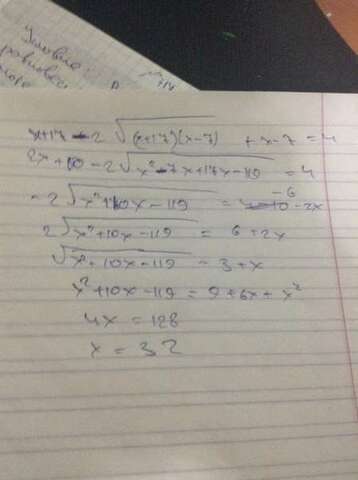 Условие:
x+17 - 2√((x+17)(x-7)) + x-7 = 4
2x+10 - 2√(x²-7x+17x-119) = 4
-2√(x²+10x-119) = -6-2x
2√(x²+10x-119) = 6+2x
√(x²+10x-119) = 3+x
x²+10x-119 = 9+6x+x²
4x = 128
x = 32